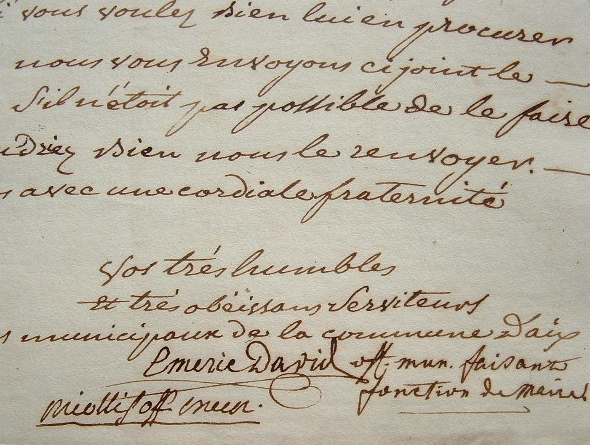 si vous voulez bien lui en procurer
nous vous Envoyons ci joint le —
S'il n'étoit pas possible de le faire
udriez bien nous le renvoyer. —
s avec une cordiale fraternité
Vos très humbles
Et très obéissans Serviteurs
s municipaux de la commune d'aix
Emeric David off. mun. faisant
fonction de Maire
miollis off. mun.